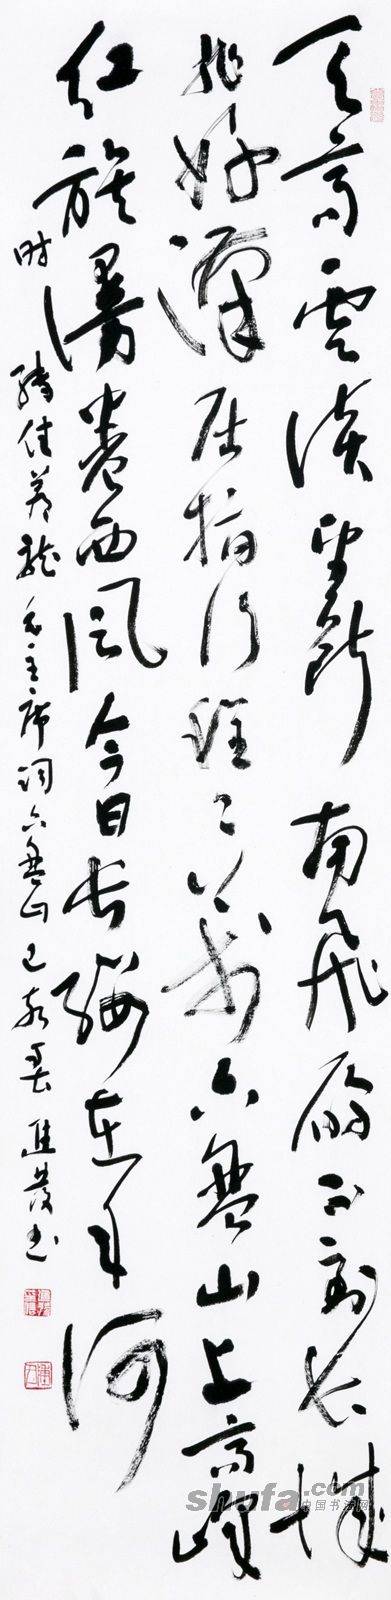 天高云淡望断南飞雁不到长城
非好汉屈指行程二万六盘山上高峰
红旗漫卷西风今日长缨在手何
时缚住苍龙毛主席词六盘山己亥春进发书
shufa.com
中国书法网